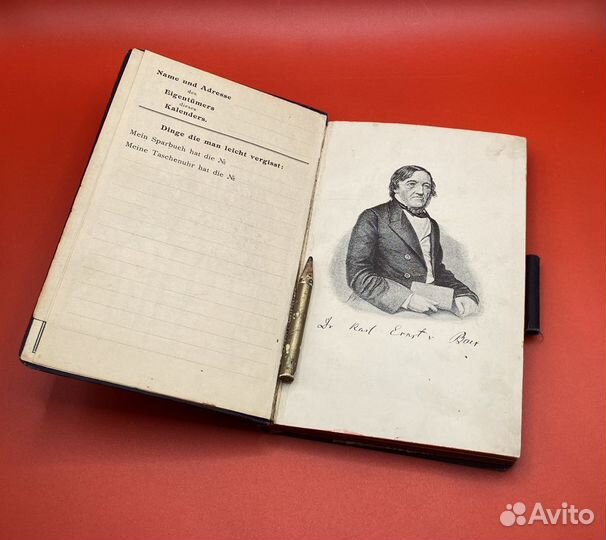 Name und Adresse
des
Eigentümers
dieses
Kalenders.
Dinge die man leicht vergisst:
Mein Sparbuch hat die №
Meine Taschenuhr hat die №
Dr Karl Ernst v Baer
Avito